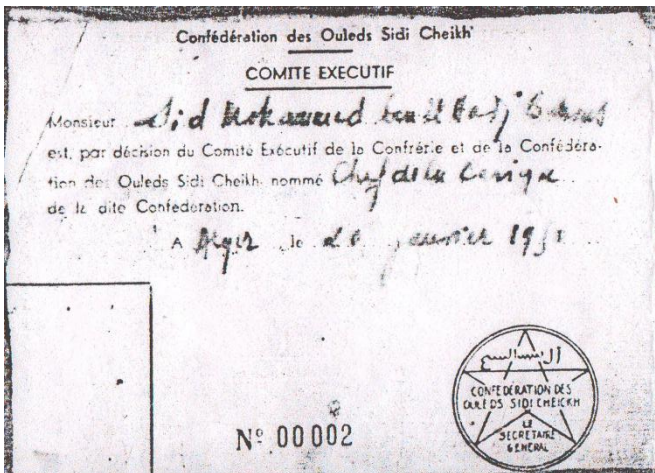 Confédération des Ouleds Sidi Cheikh
COMITE EXECUTIF
Monsieur Sid Mohammed ben El Hadj
est, par décision du Comité Exécutif de la Confrérie et de la Confédéra-
tion des Ouleds Sidi Cheikh nommé Chef de la
de la dite Confédération.
A Alger, le janvier
آل الشيخ
CONFEDERATION DES
OULEDS SIDI CHEICKH
LE
SECRETAIRE
GENERAL
Nº 00002